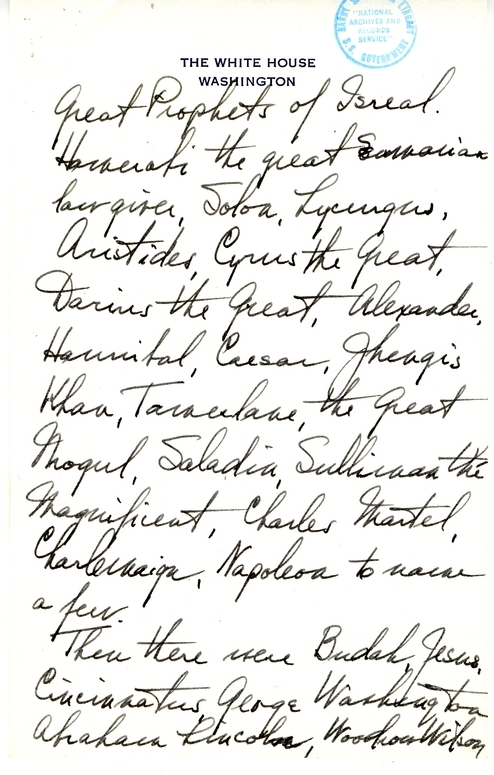 "NATIONAL
ARCHIVES AND
RECORDS
SERVICE"
U.S. GOVERNMENT
LIBRARY
THE WHITE HOUSE
WASHINGTON
Great Prophets of Isreal.
Hamerabi the great
law giver, Solon, Lycurgus,
Aristides, Cyrus the Great,
Darius the Great, Alexander,
Hannibal, Caesar, Jhengis
Khan, Tamerlane, the Great
Mogul, Saladin, Sulliman the
Magnificent, Charles Martel,
Charlemaign, Napoleon to name
a few.
Then there were Budah, Jesus,
Cincinnatus, George Washington
Abraham Lincoln, Woodrow Wilson